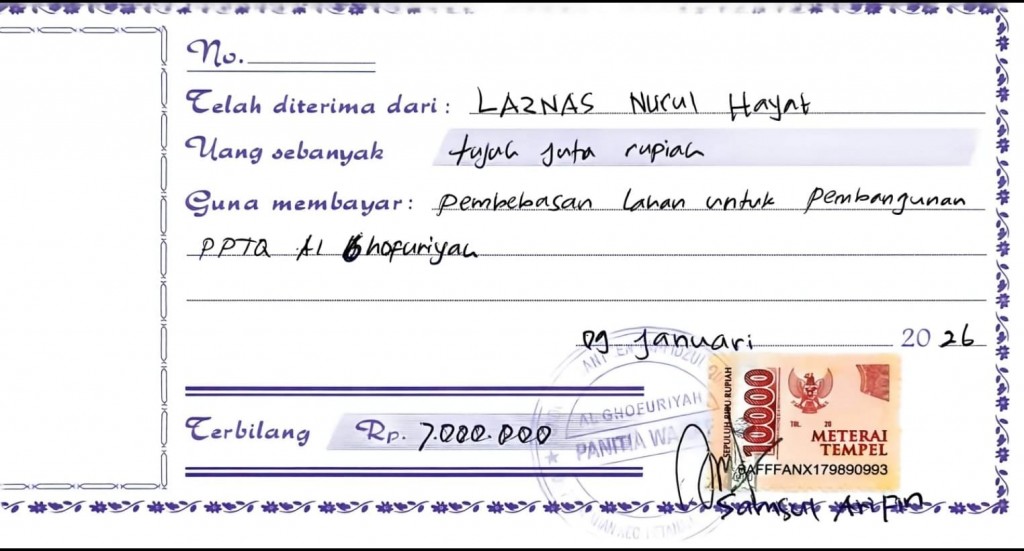 No.
Telah diterima dari : LAZNAS Nurul Hayat
Uang sebanyak tujuh juta rupiah
Guna membayar : pembebasan Lahan untuk pembangunan
PPTQ Al Ghofuriyah
09 Januari 2026
Terbilang Rp. 7.000.000
AL GHOFURIYAH
PANITIA WA
SEPULUH RIBU RUPIAH
10000
TGL. 20
METERAI
TEMPEL
8AFFFANX179890993
Samsul Arifin